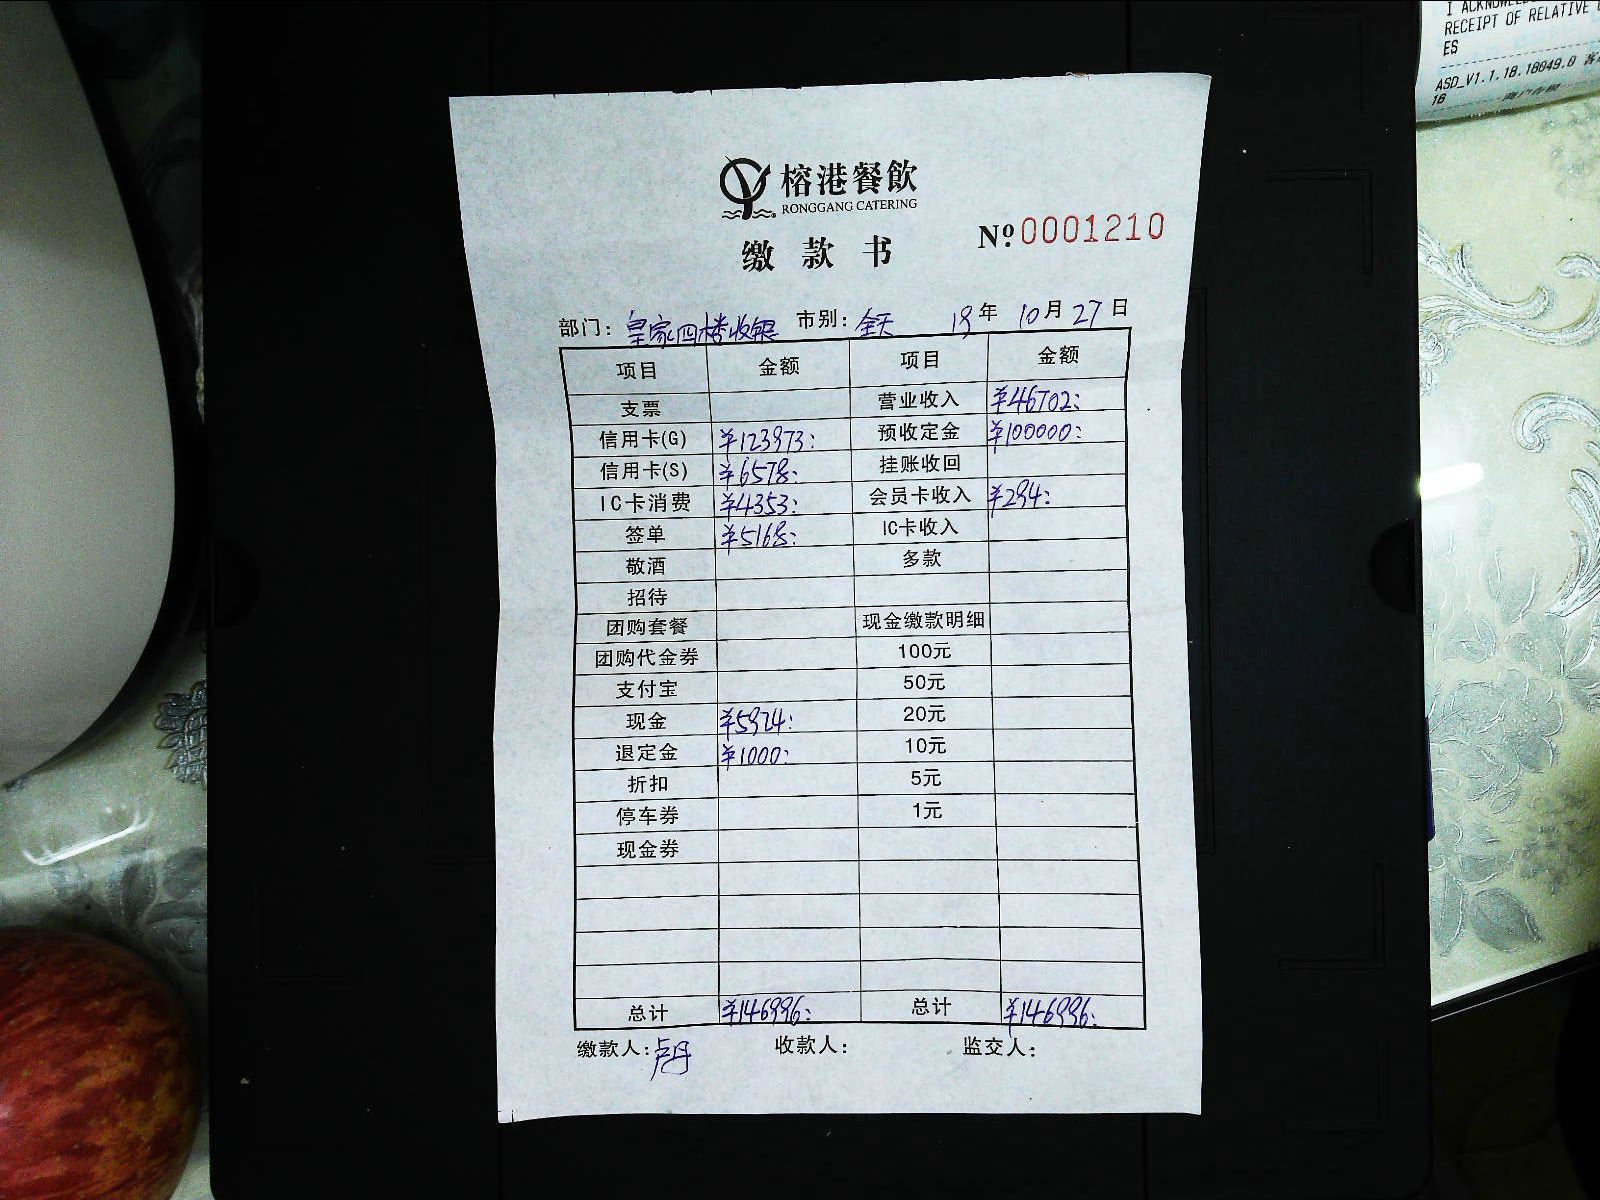 I ACKNOWLED
RECEIPT OF RELATIVE
ES
ASD_V1.1.18.18049.0
18 商户存根
榕港餐飲
RONGGANG CATERING
缴款书 Nº:0001210
部门：皇家四楼收银 市别：全天 18年 10月 27日
项目 金额 项目 金额
支票 营业收入 ¥46702:
信用卡(G) ¥123973: 预收定金 ¥100000:
信用卡(S) ¥6578: 挂账收回
IC卡消费 ¥4353: 会员卡收入 ¥294:
签单 ¥5168: IC卡收入
敬酒 多款
招待
团购套餐 现金缴款明细
团购代金券 100元
支付宝 50元
现金 ¥5924: 20元
退定金 ¥1000: 10元
折扣 5元
停车券 1元
现金券
总计 ¥146996: 总计 ¥146996:
缴款人：卢丹 收款人： 监交人：